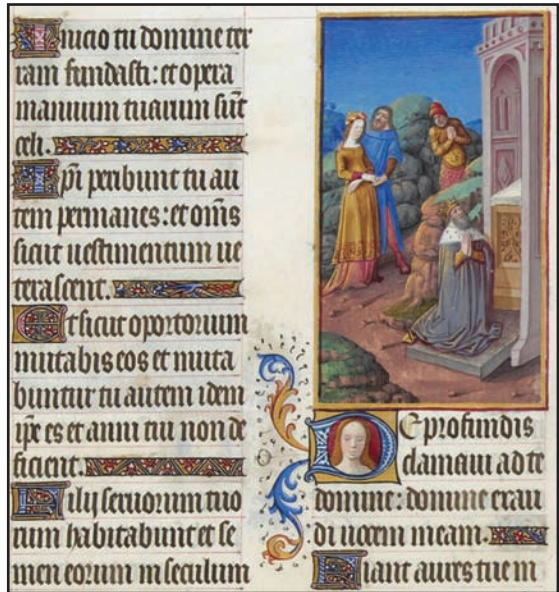 Inicio tu domine ter
ram fundasti: et opera
manuum tuarum sūt
celi.
Ipi peribunt tu au
tem permanes: et om̄s
sicut uestimentum ue
terascent.
Et sicut oportorium
mutabis eos et muta
buntur tu autem idem
ip̄e es et anni tui non de
ficient.
Filij seruorum tuo
rum habitabunt et se
men eorum in seculum
De profundis
clamaui ad te
domine: domine exau
di uocem meam.
Fiant aures tue in